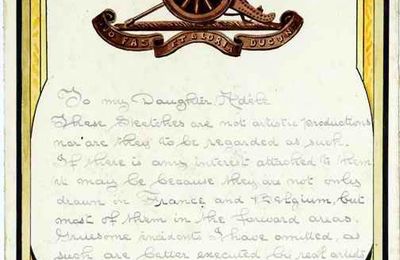 QUO FAS ET GLORIA DUCUNT
To my Daughter Adèle
These Sketches are not artistic productions
nor are they to be regarded as such.
If there is any interest attached to them
it may be because they are not only
drawn in France and Belgium, but
most of them in the forward areas.
Gruesome incidents I have omitted, as
such are better executed by real artists